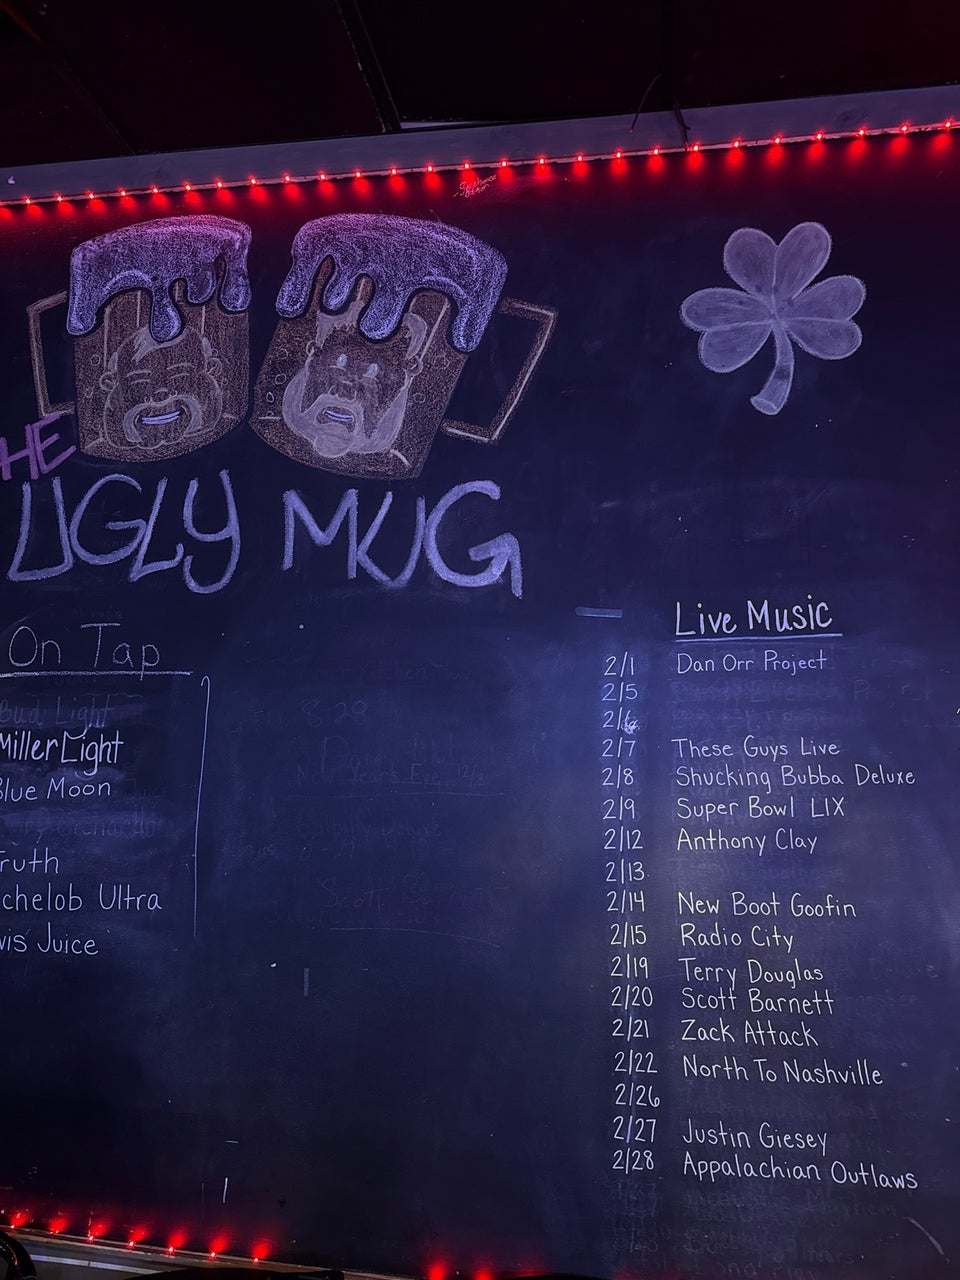 THE
UGLY MUG
On Tap
Bud Light
Miller Light
Blue Moon
Truth
chelob Ultra
wis Juice
8-29
New Years Eve 12/31
Live Music
2/1 Dan Orr Project
2/5
2/6
2/7 These Guys Live
2/8 Shucking Bubba Deluxe
2/9 Super Bowl LIX
2/12 Anthony Clay
2/13
2/14 New Boot Goofin
2/15 Radio City
2/19 Terry Douglas
2/20 Scott Barnett
2/21 Zack Attack
2/22 North To Nashville
2/26
2/27 Justin Giesey
2/28 Appalachian Outlaws